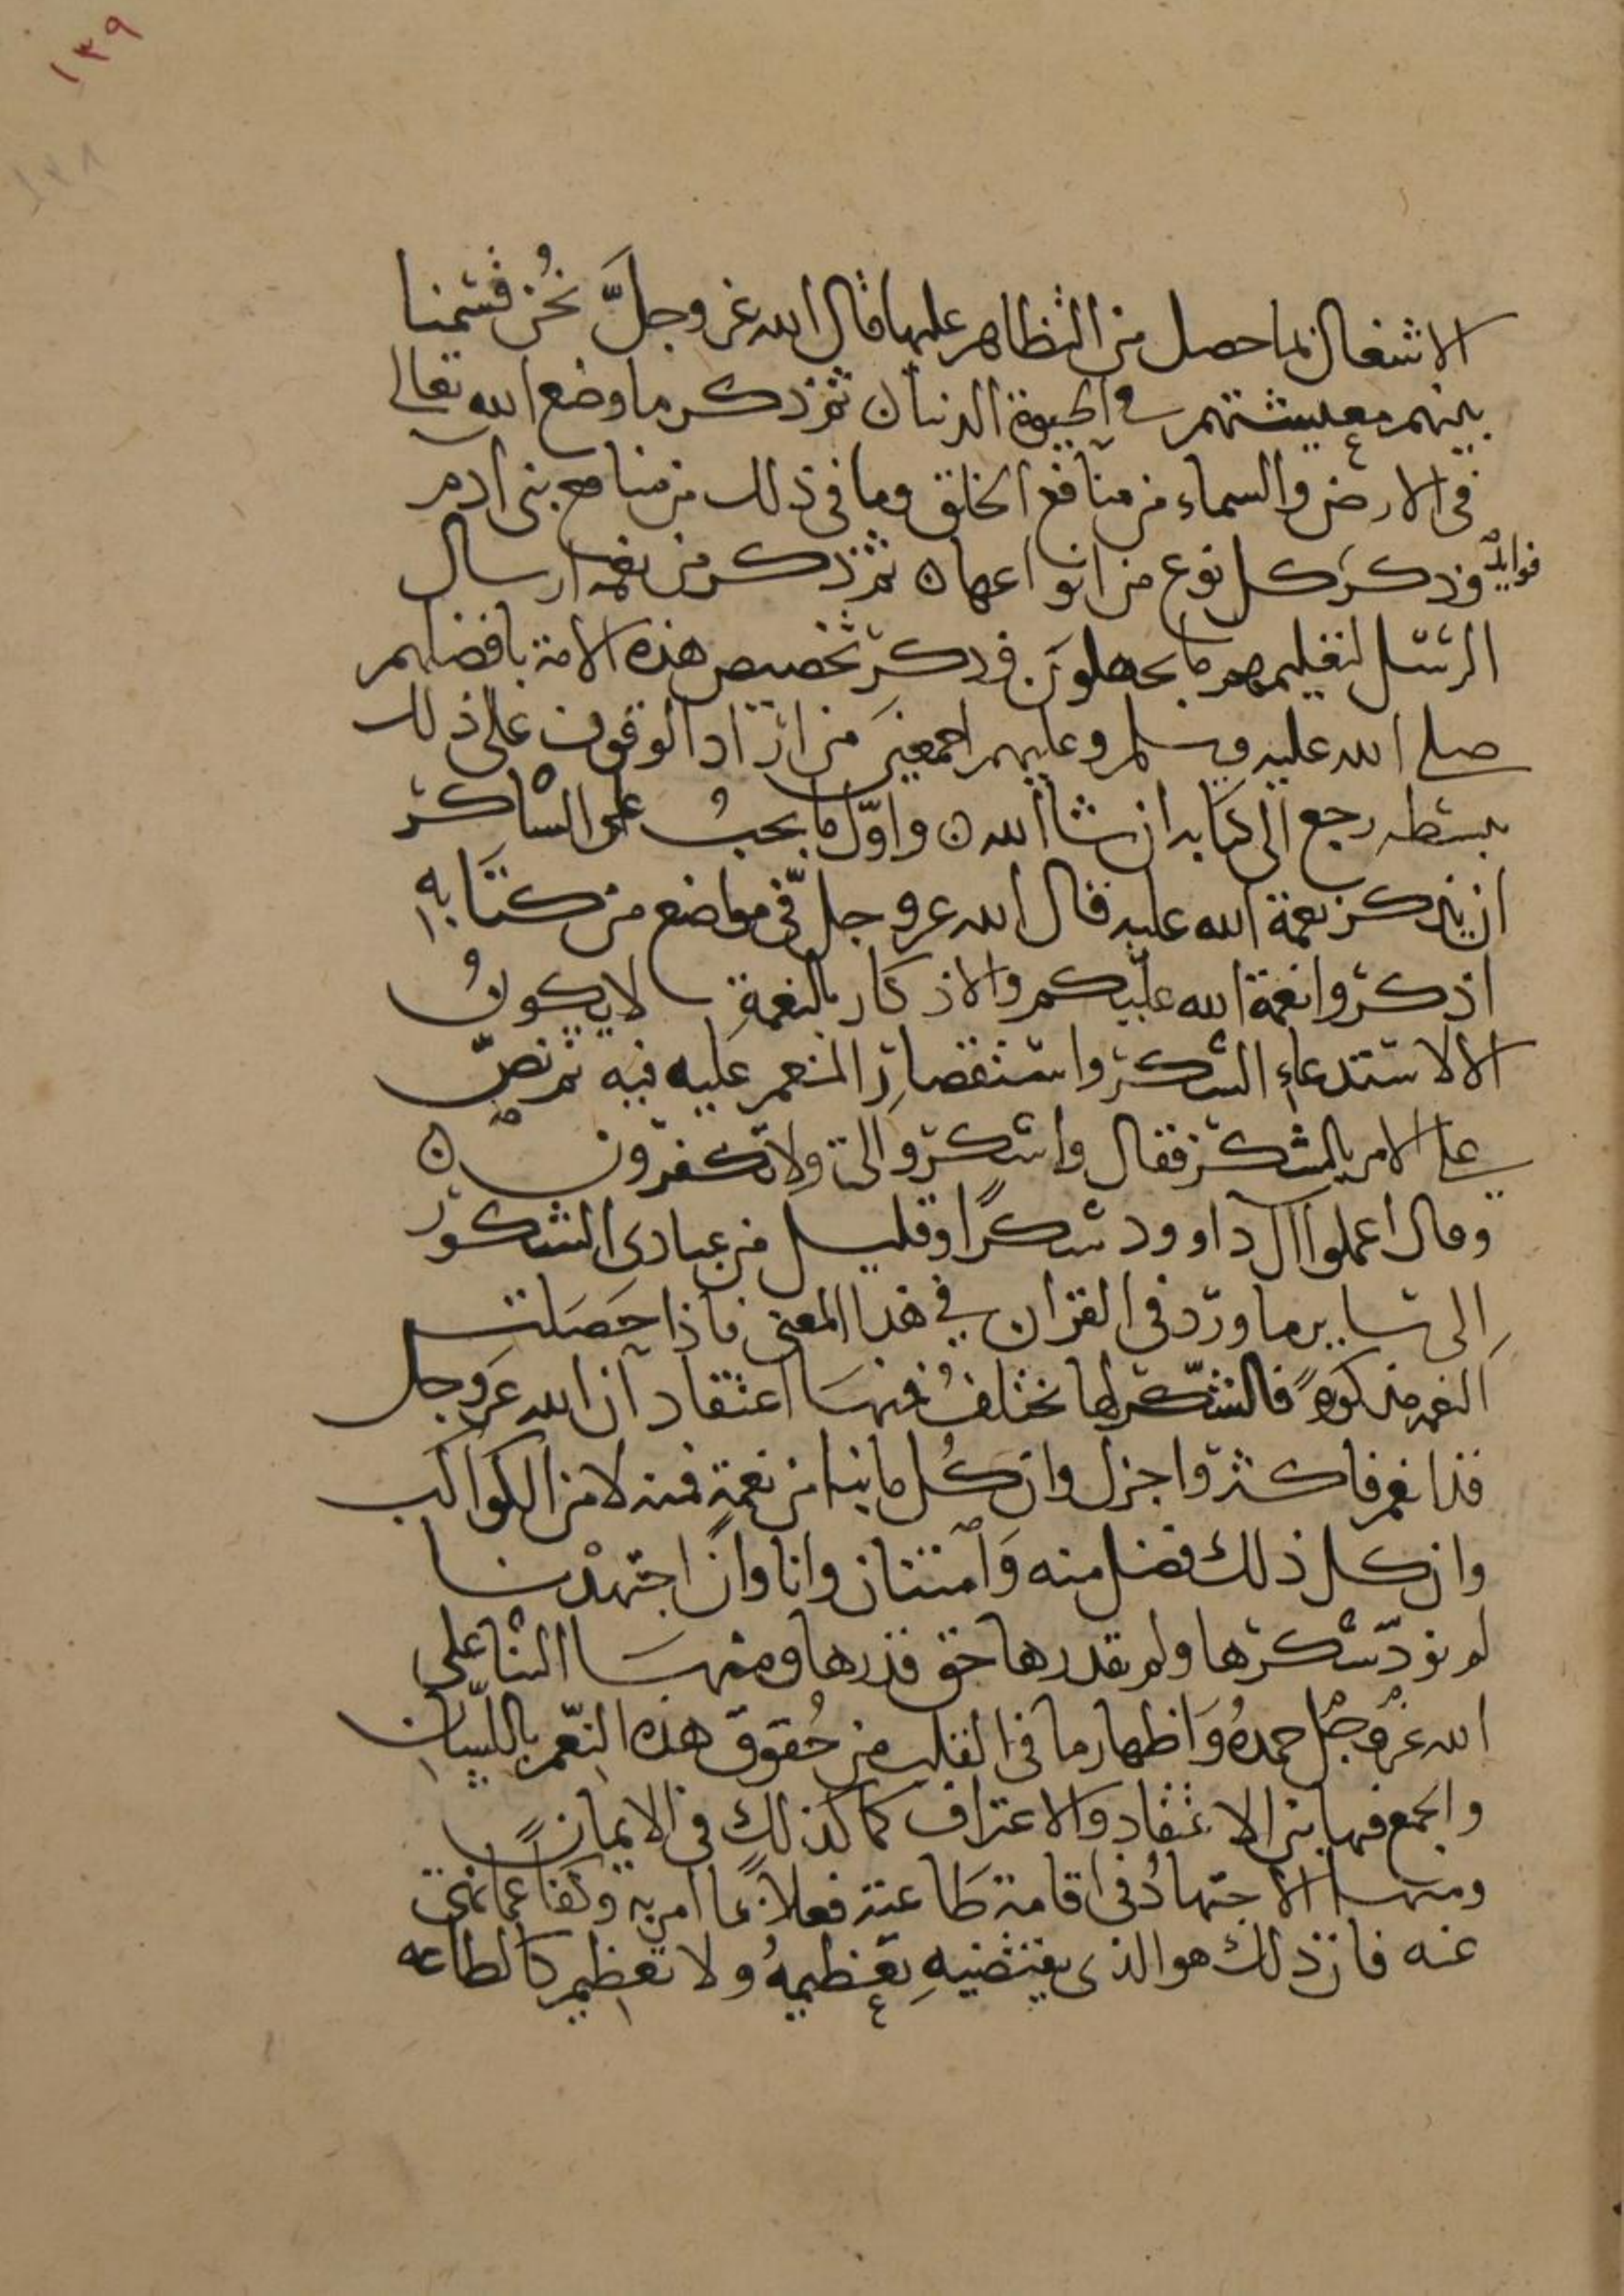 ١٣٩
١٣٨
الاشغال لما حصل من التظاهر عليها قال الله عز وجلَّ نحُن قسمنا
بينهم معيشتهم في الحيوة الدنيا ن ثم ذكر ما وضع الله تعالى
في الارض والسماء من منافع الخلق وما في ذلك من منافع بنى ادم
فوايد
وذكر كل نوع من انواعها ن ثم ذكر من نعمه ارسال
الرسل لتعليمهم ما يجهلون وذكر تخصيص هذه الامة بافضلهم
صلى الله عليه وسلم وعليهم اجمعين من اراد الوقوف على ذلك
ببسطه رجع الى كتابه ان شا الله ن واوّل ما يجبُ على الشاكر
ان يذكر نعمة الله عليه قال الله عز وجل في مواضع من كتابه
اذكروا نعمة الله عليكم والاذكار بالنعمةِ لا يكونُ
الا لاستدعاءِ الشكر واستقصارِ المنعم عليه فيه ثم نصّ
على الامر بالشكر فقال واشكروا لي ولا تكفرون ن
وقال اعملوا ال داوود شكرًا وقليل من عبادى الشكور
إلى ساير ما ورد في القران في هذا المعنى فاذا حَصَلت
النعم مذكورهً فالشكر لها يختلفُ فمنها اعتقاد ان الله عز وجل
قد انعم فاكثر واجزل وان كُل ما بنا من نعمةٍ فمنه لا من الكواكب
وان كل ذلك فضل منه وَامتنان وانا وان اجتهدْنا
لم نودّ شكرها ولم نقدرها حق قدرها ومنها الثنا على
الله عز وجل حمدهُ وَاظهار ما في القلب من حُقوق هذه النِعّم باللسان
والجمع فيها بين الاعتقاد والاعتراف كما كذلك في الايمان
ومنها الاجتهادُ في اقامة طَاعته فعلاً بما امر به وكفًا عما نهى
عنه فان ذلك هو الذى يقتضيهِ تعظيمهُ ولا تعظيم كالطاعه